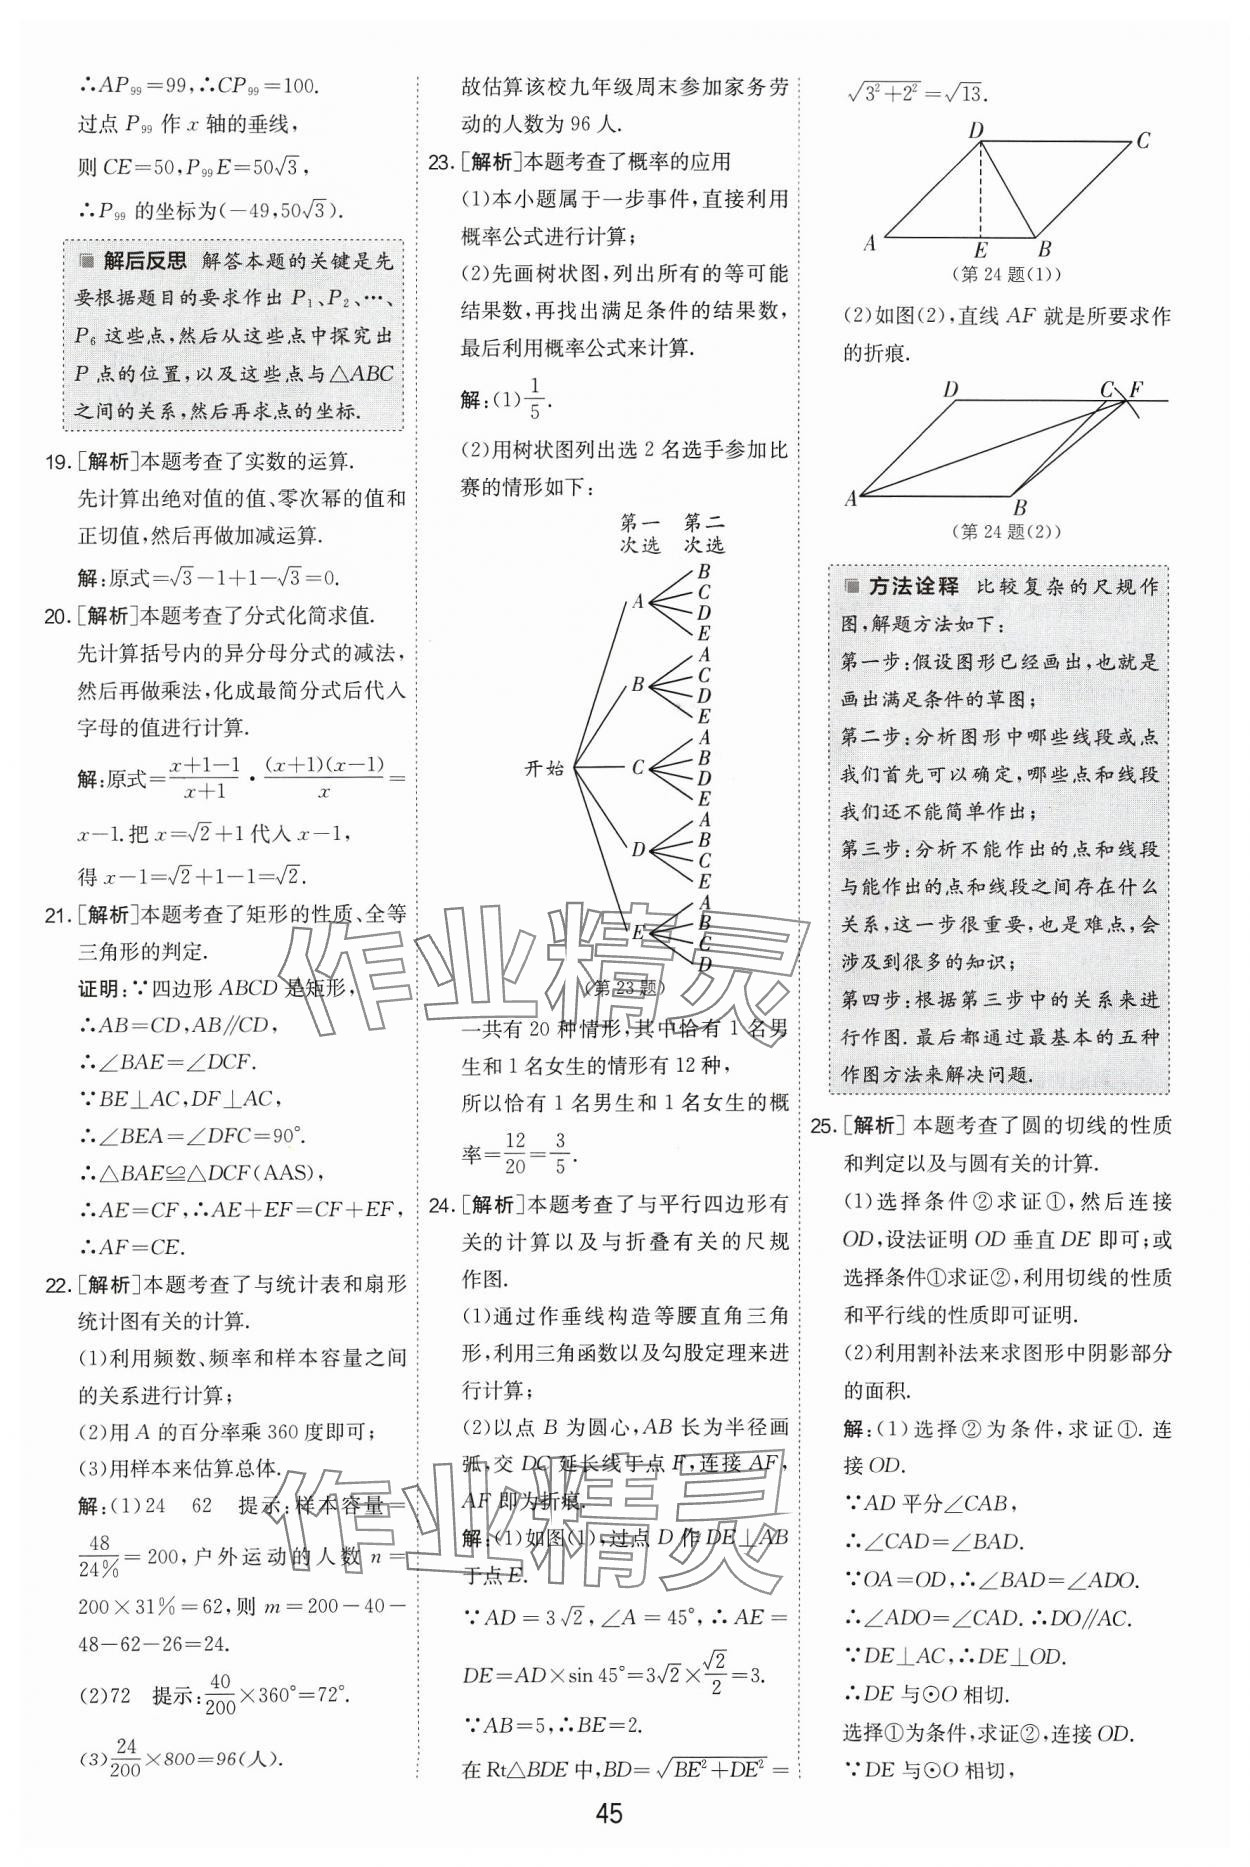 ∴AP₉₉=99,∴CP₉₉=100.
过点 P₉₉ 作 x 轴的垂线,
则 CE=50,P₉₉E=50√3,
∴P₉₉ 的坐标为(-49,50√3).
解后反思 解答本题的关键是先
要根据题目的要求作出 P₁、P₂、…、
P₆ 这些点,然后从这些点中探究出
P 点的位置,以及这些点与△ABC
之间的关系,然后再求点的坐标.
19. [解析]本题考查了实数的运算.
先计算出绝对值的值、零次幂的值和
正切值,然后再做加减运算.
解:原式=√3-1+1-√3=0.
20. [解析]本题考查了分式化简求值.
先计算括号内的异分母分式的减法,
然后再做乘法,化成最简分式后代入
字母的值进行计算.
解:原式=(x+1-1)/(x+1)·((x+1)(x-1))/x=
x-1.把 x=√2+1代入 x-1,
得 x-1=√2+1-1=√2.
21. [解析]本题考查了矩形的性质、全等
三角形的判定.
证明:∵四边形 ABCD 是矩形,
∴AB=CD,AB∥CD,
∴∠BAE=∠DCF.
∵BE⊥AC,DF⊥AC,
∴∠BEA=∠DFC=90°.
∴△BAE≌△DCF(AAS),
∴AE=CF,∴AE+EF=CF+EF,
∴AF=CE.
22. [解析]本题考查了与统计表和扇形
统计图有关的计算.
(1)利用频数、频率和样本容量之间
的关系进行计算;
(2)用 A 的百分率乘 360 度即可;
(3)用样本来估算总体.
解:(1)24 62 提示:样本容量=
48/24%=200,户外运动的人数 n=
200×31%=62,则 m=200-40-
48-62-26=24.
(2)72 提示:40/200×360°=72°.
(3)24/200×800=96(人).
故估算该校九年级周末参加家务劳
动的人数为 96 人.
23. [解析]本题考查了概率的应用
(1)本小题属于一步事件,直接利用
概率公式进行计算;
(2)先画树状图,列出所有的等可能
结果数,再找出满足条件的结果数,
最后利用概率公式来计算.
解:(1)1/5.
(2)用树状图列出选 2 名选手参加比
赛的情形如下:
第一 第二
次选 次选
开始
A B C D E
B A C D E
C A B D E
D A B C E
E A B C D
(第 23 题)
一共有 20 种情形,其中恰有 1 名男
生和 1 名女生的情形有 12 种,
所以恰有 1 名男生和 1 名女生的概
率=12/20=3/5.
24. [解析]本题考查了与平行四边形有
关的计算以及与折叠有关的尺规
作图.
(1)通过作垂线构造等腰直角三角
形,利用三角函数以及勾股定理来进
行计算;
(2)以点 B 为圆心,AB 长为半径画
弧,交 DC 延长线于点 F,连接 AF,
AF 即为折痕.
解:(1)如图(1),过点 D 作 DE⊥AB
于点 E.
∵AD=3√2,∠A=45°,∴AE=
DE=AD×sin 45°=3√2×√2/2=3.
∵AB=5,∴BE=2.
在 Rt△BDE 中,BD=√(BE²+DE²)=
√(3²+2²)=√13.
D C
A E B
(第 24 题(1))
(2)如图(2),直线 AF 就是所要求作
的折痕.
D C F
A B
(第 24 题(2))
方法诠释 比较复杂的尺规作
图,解题方法如下:
第一步:假设图形已经画出,也就是
画出满足条件的草图;
第二步:分析图形中哪些线段或点
我们首先可以确定,哪些点和线段
我们还不能简单作出;
第三步:分析不能作出的点和线段
与能作出的点和线段之间存在什么
关系,这一步很重要,也是难点,会
涉及到很多的知识;
第四步:根据第三步中的关系来进
行作图.最后都通过最基本的五种
作图方法来解决问题.
25. [解析]本题考查了圆的切线的性质
和判定以及与圆有关的计算.
(1)选择条件②求证①,然后连接
OD,设法证明 OD 垂直 DE 即可;或
选择条件①求证②,利用切线的性质
和平行线的性质即可证明.
(2)利用割补法来求图形中阴影部分
的面积.
解:(1)选择②为条件,求证①.连
接 OD.
∵AD 平分∠CAB,
∴∠CAD=∠BAD.
∵OA=OD,∴∠BAD=∠ADO.
∴∠ADO=∠CAD.∴DO∥AC.
∵DE⊥AC,∴DE⊥OD.
∴DE 与⊙O 相切.
选择①为条件,求证②,连接 OD.
∵DE 与⊙O 相切,
45
作业精灵
作业精灵